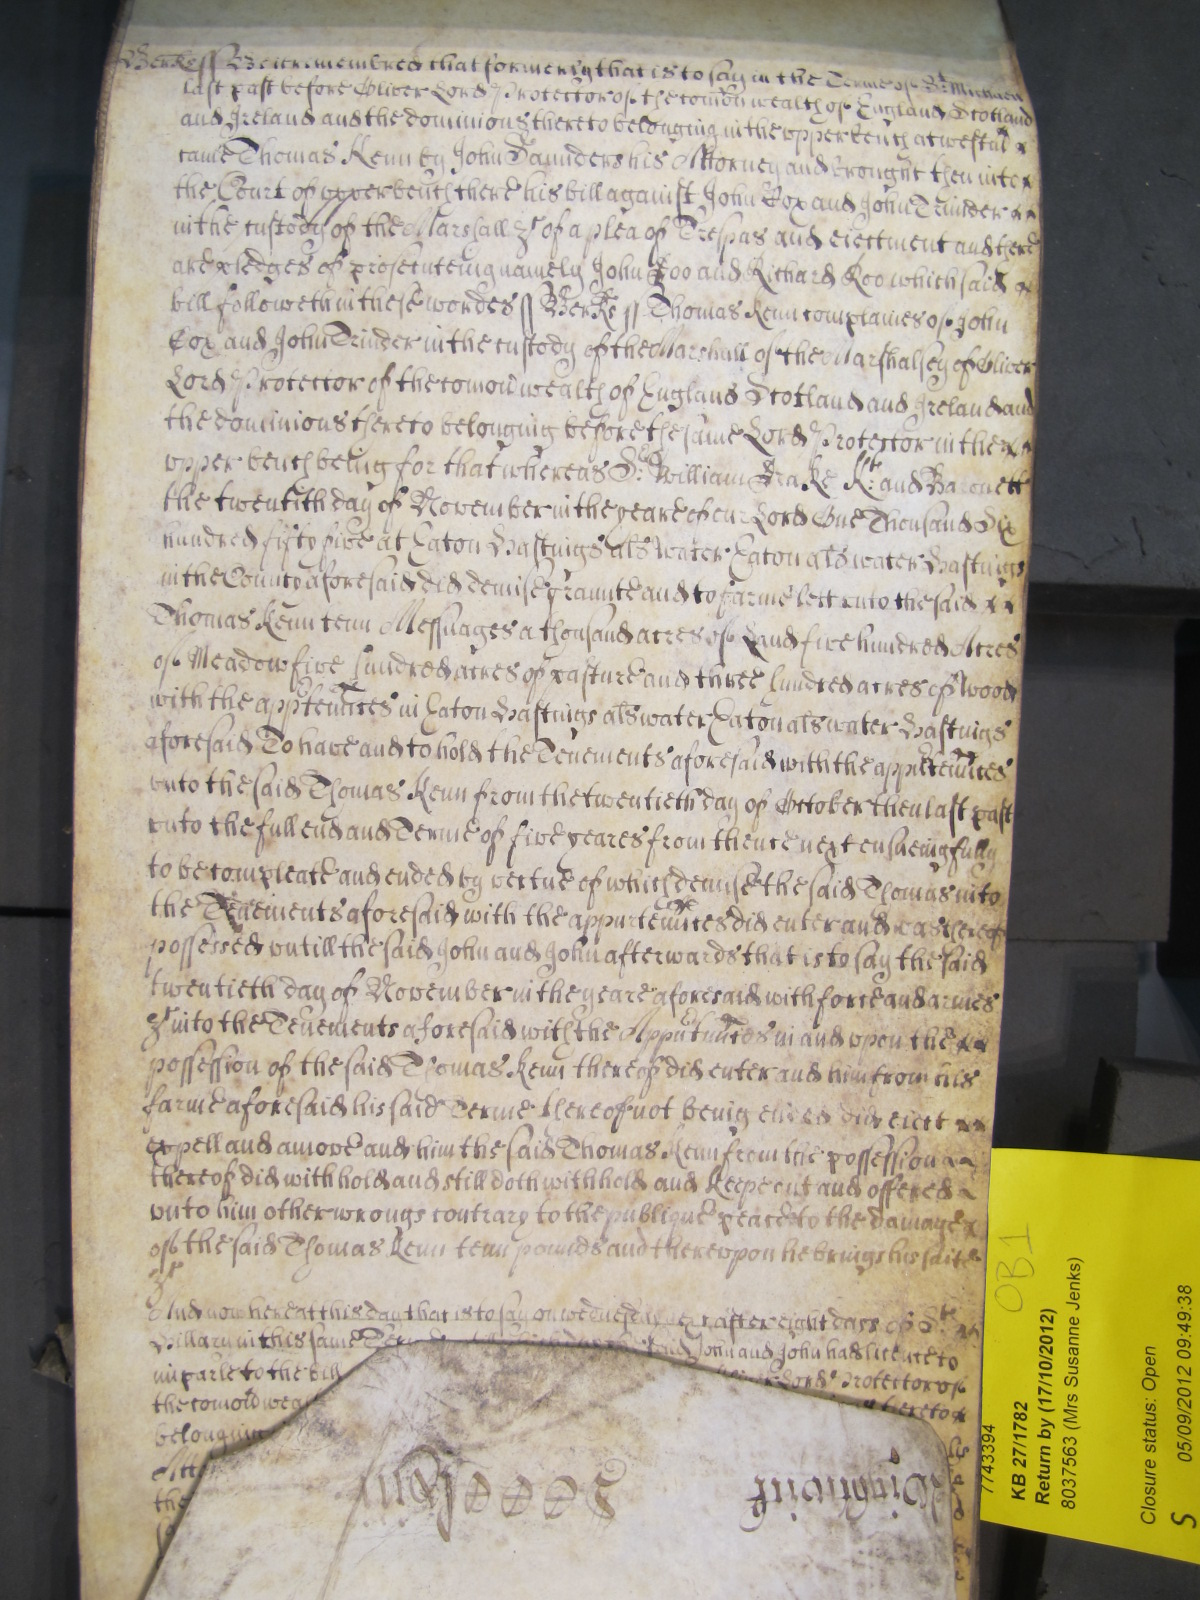 Berks ss Be it remembred that formerly that is to say in the Terme of St Michaell
last past before Oliver Lord Protector of the comon wealth of England Scotland
and Ireland and the dominions thereto belonging in the upper bench at westm
came Thomas Kenn by John Saunders his Attorney and brought then into
the Court of upper bench there his bill against John Cox and John Trinder
in the custody of the Marshall &c of a plea of Trespas and eiectment and there
are pledges of prosecuteing namely John Doo and Richard Roo which said
bill followeth in these wordes ss Berks ss Thomas Kenn complaines of John
Cox and John Trinder in the custody of the Marshall of the Marshalsey of Oliver
Lord Protector of the comon wealth of England Scotland and Ireland and
the dominions thereto belonging before the same Lord Protector in the
upper bench being for that whereas Sr William Drake Kt and Baronett
the twentith day of November in the yeare of our Lord One Thousand Six
hundred fifty five at Eaton Hastings als Water Eaton als water Hastings
in the County aforesaid did demise graunte and to farme lett unto the said
Thomas Kenn tenn Messuages a thousand acres of Land five hundred Acres
of Meadow five hundred acres of pasture and three hundred acres of Wood
with the apptennces in Eaton Hastings als water Eaton als water Hastings
aforesaid To have and to hold the Tenements aforesaid with the appurtennces
unto the said Thomas Kenn from the twentieth day of October then last past
unto the full end and Terme of five yeares from thence next ensueing fully
to be compleate and ended by vertue of which demise the said Thomas into
the Tenements aforesaid with the appurtennces did enter and was thereof
possessed untill the said John and John afterwards that is to say the said
twentieth day of November in the yeare aforesaid with force and armes
&c into the Tenements aforesaid with the Appurtnnces in and upon the
possession of the said Thomas Kenn thereof did enter and him from his
farme aforesaid his said Terme thereof not being ended did eiect
expell and amove and him the said Thomas Kenn from the possession
thereof did withhold and still doth withhold and keepe out and offered
unto him other wrongs contrary to the publique peace to the damage
of the said Thomas Kenn tenn pounds and thereupon he brings his suite
&c
And now here at this day that is to say on wednesday next after eight dayes of St
Hillary in this same John and John had licence to
imparle to the bill Lord Protector of
the comon wea thereto
belonging
the
Wightwick
7743394
KB 27/1782
Return by (17/10/2012)
8037563 (Mrs Susanne Jenks)
Closure status: Open
05/09/2012 09:49:38
S
OB1